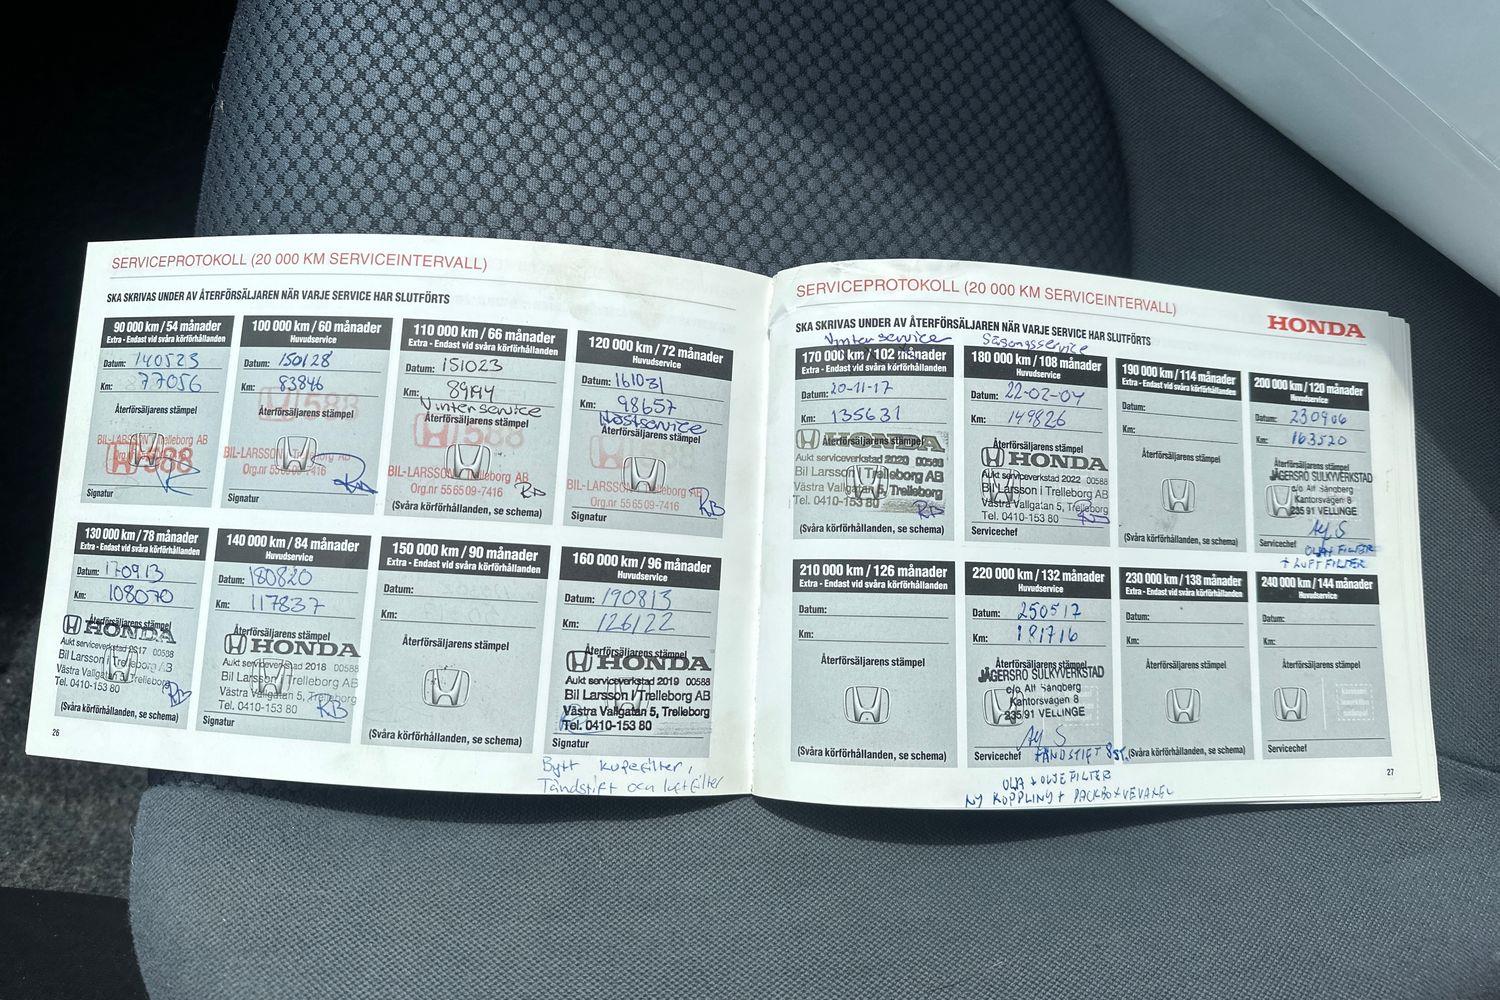 SERVICEPROTOKOLL (20 000 KM SERVICEINTERVALL)
SKA SKRIVAS UNDER AV ÅTERFÖRSÄLJAREN NÄR VARJE SERVICE HAR SLUTFÖRTS
90 000 km / 54 månader
Extra - Endast vid svåra körförhållanden
Datum: 140523
Km: 77056
Återförsäljarens stämpel
BIL-LARSSON i Trelleborg AB
Org.nr 556509-7416
Signatur
100 000 km / 60 månader
Huvudservice
Datum: 150128
Km: 83846
Återförsäljarens stämpel
BIL-LARSSON i Trelleborg AB
Org.nr 556509-7416
Signatur
110 000 km / 66 månader
Extra - Endast vid svåra körförhållanden
Datum: 151023
Km:
Vinterservice
Återförsäljarens stämpel
588
BIL-LARSSON i Trelleborg AB
Org.nr 556509-7416
(Svåra körförhållanden, se schema)
120 000 km / 72 månader
Huvudservice
Datum: 161031
Km: 98657
Höstservice
Återförsäljarens stämpel
BIL-LARSSON i Trelleborg AB
Org.nr 556509-7416
RB
Signatur
130 000 km / 78 månader
Extra - Endast vid svåra körförhållanden
Datum: 170913
Km: 108070
Återförsäljarens stämpel
HONDA
Aukt serviceverkstad 2017 00588
Bil Larsson i Trelleborg AB
Västra Vallgatan 5, Trelleborg
Tel. 0410-153 80
(Svåra körförhållanden, se schema)
140 000 km / 84 månader
Huvudservice
Datum: 180820
Km: 117837
Återförsäljarens stämpel
HONDA
Aukt serviceverkstad 2018 00588
Bil Larsson i Trelleborg AB
Västra Vallgatan 5, Trelleborg
Tel. 0410-153 80
RB
Signatur
150 000 km / 90 månader
Extra - Endast vid svåra körförhållanden
Datum:
Km:
Återförsäljarens stämpel
(Svåra körförhållanden, se schema)
160 000 km / 96 månader
Huvudservice
Datum: 190813
Km: 126122
Återförsäljarens stämpel
HONDA
Aukt serviceverkstad 2019 00588
Bil Larsson i Trelleborg AB
Västra Vallgatan 5, Trelleborg
Tel. 0410-153 80
Signatur
Bytt kupefilter,
Tändstift och luftfilter
26
SERVICEPROTOKOLL (20 000 KM SERVICEINTERVALL)
HONDA
SKA SKRIVAS UNDER AV ÅTERFÖRSÄLJAREN NÄR VARJE SERVICE HAR SLUTFÖRTS
Vinterservice
170 000 km / 102 månader
Extra - Endast vid svåra körförhållanden
Datum: 20-11-17
Km: 135631
Återförsäljarens stämpel
HONDA
Aukt serviceverkstad 2020 00588
Bil Larsson i Trelleborg AB
Västra Vallgatan 5, Trelleborg
Tel. 0410-153 80
(Svåra körförhållanden, se schema)
Säsongsservice
180 000 km / 108 månader
Huvudservice
Datum: 22-02-04
Km: 149826
Återförsäljarens stämpel
HONDA
Aukt serviceverkstad 2022 00588
Bil Larsson i Trelleborg AB
Västra Vallgatan 5, Trelleborg
Tel. 0410-153 80
Servicechef
190 000 km / 114 månader
Extra - Endast vid svåra körförhållanden
Datum:
Km:
Återförsäljarens stämpel
(Svåra körförhållanden, se schema)
200 000 km / 120 månader
Huvudservice
Datum: 230906
Km: 163520
Återförsäljarens stämpel
JÄGERSRO SULKYVERKSTAD
c/o Alf Sandberg
Kantorsvägen 8
235 91 VELLINGE
Servicechef
OLJA+FILTER
+ LUFTFILTER
210 000 km / 126 månader
Extra - Endast vid svåra körförhållanden
Datum:
Km:
Återförsäljarens stämpel
(Svåra körförhållanden, se schema)
220 000 km / 132 månader
Huvudservice
Datum: 250517
Km: 181716
Återförsäljarens stämpel
JÄGERSRO SULKYVERKSTAD
c/o Alf Sandberg
Kantorsvägen 8
235 91 VELLINGE
Servicechef TÄNDSTIFT 8 ST.
OLJA + OLJEFILTER
NY KOPPLING + PACKBOX VEVAXEL
230 000 km / 138 månader
Extra - Endast vid svåra körförhållanden
Datum:
Km:
Återförsäljarens stämpel
(Svåra körförhållanden, se schema)
240 000 km / 144 månader
Huvudservice
Datum:
Km:
Återförsäljarens stämpel
Servicechef
27